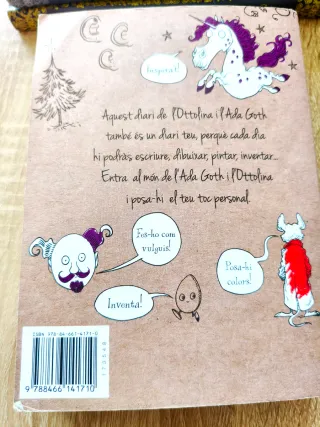 Inspira't!
Aquest diari de l'Ottolina i l'Ada Goth
també és un diari teu, perquè cada dia
hi podràs escriure, dibuixar, pintar, inventar...
Entra al món de l'Ada Goth i l'Ottolina
i posa-hi el teu toc personal.
Fes-ho com
vulguis!
Posa-hi
colors!
Inventa!
ISBN 978-84-667-4171-0
9 788466 141710